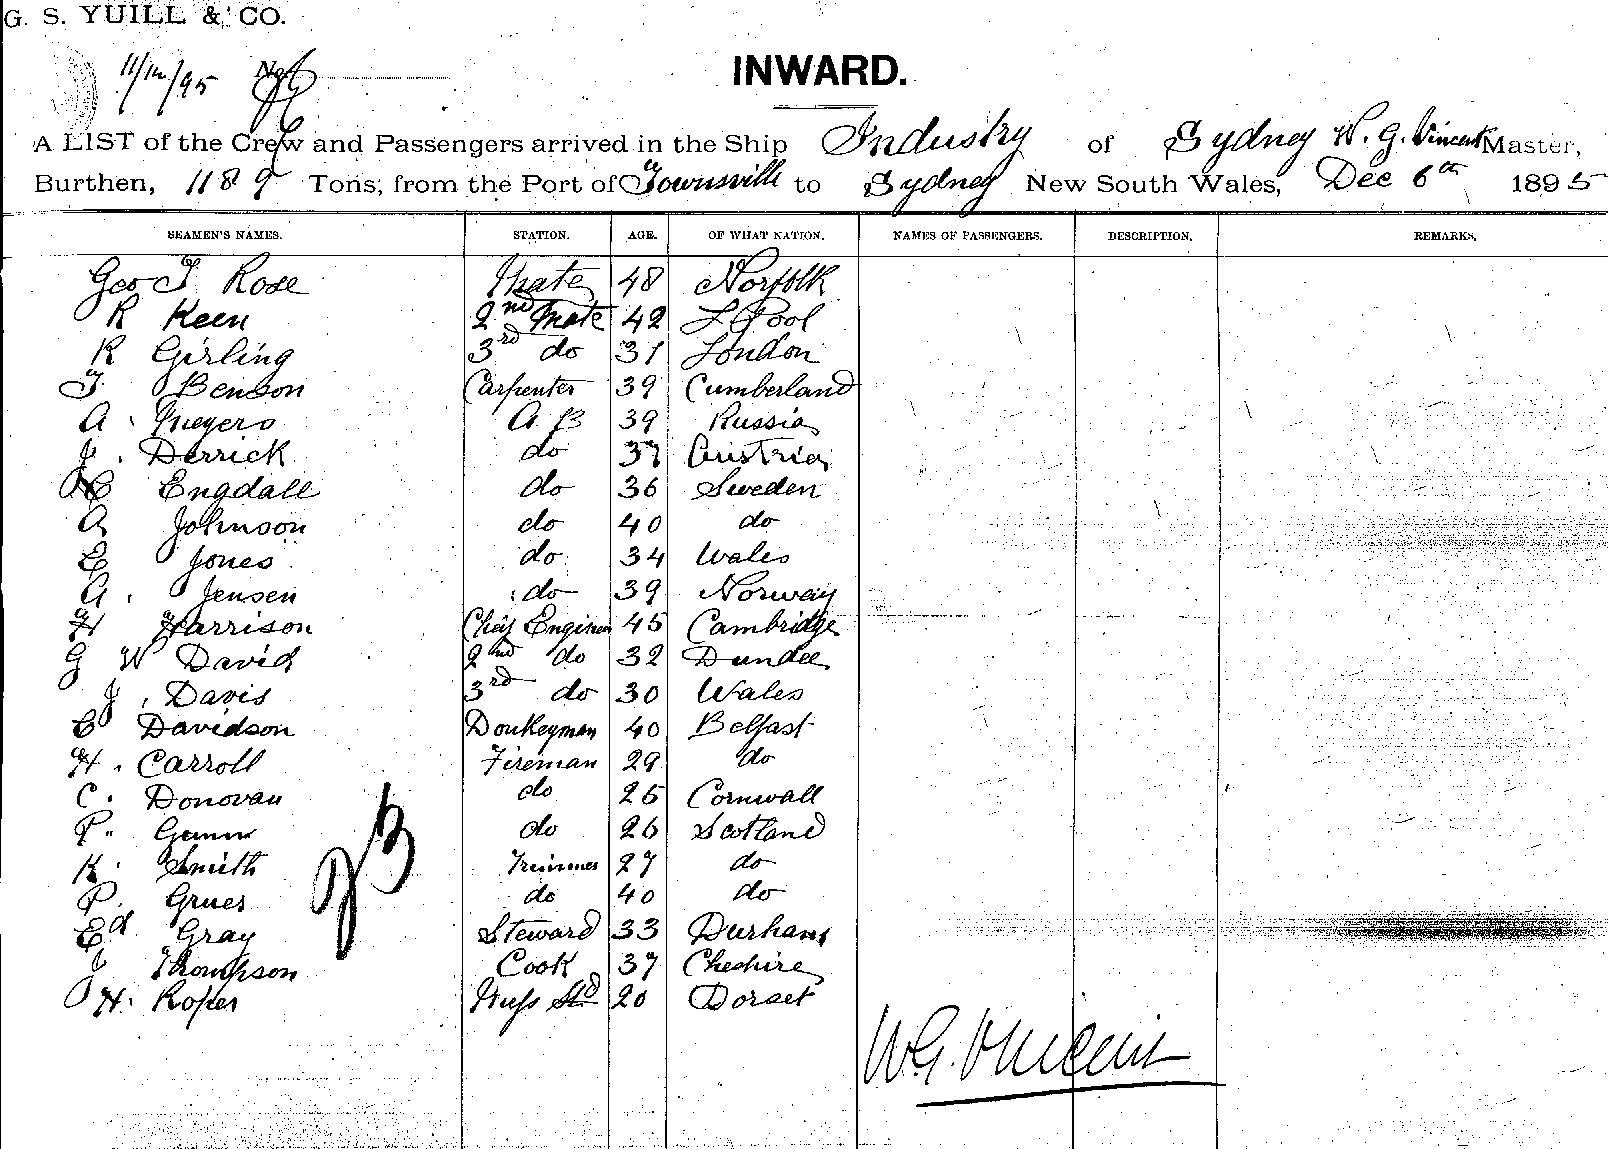 G. S. YUILL & CO.
11/12/95
INWARD.
A LIST of the Crew and Passengers arrived in the Ship Industry of Sydney W. G. Vincent Master,
Burthen, 1189 Tons, from the Port of Townsville to Sydney New South Wales, Dec 6th 1895
SEAMEN'S NAMES. STATION. AGE. OF WHAT NATION. NAMES OF PASSENGERS. DESCRIPTION. REMARKS.
Geo T Rose Mate 48 Norfolk
R Keen 2nd Mate 42 L Pool
R Girling 3rd do 31 London
T Benson Carpenter 39 Cumberland
A. Meyers A B 39 Russia
J. Derrick do 37 Austria
C Engdall do 36 Sweden
A Johnson do 40 do
E Jones do 34 Wales
A. Jensen do 39 Norway
H Harrison Chief Engineer 45 Cambridge
G W David 2nd do 32 Dundee
J. Davis 3rd do 30 Wales
C Davidson Donkeyman 40 Belfast
H. Carroll Fireman 29 do
C. Donovan do 25 Cornwall
P. do 26 Scotland
K. Smith Trimmer 27 do
P. Gruer do 40 do
Ed Gray Steward 33 Durham
J Thompson Cook 37 Cheshire
H. Roper Mess Std 20 Dorset
W. G. Vincent